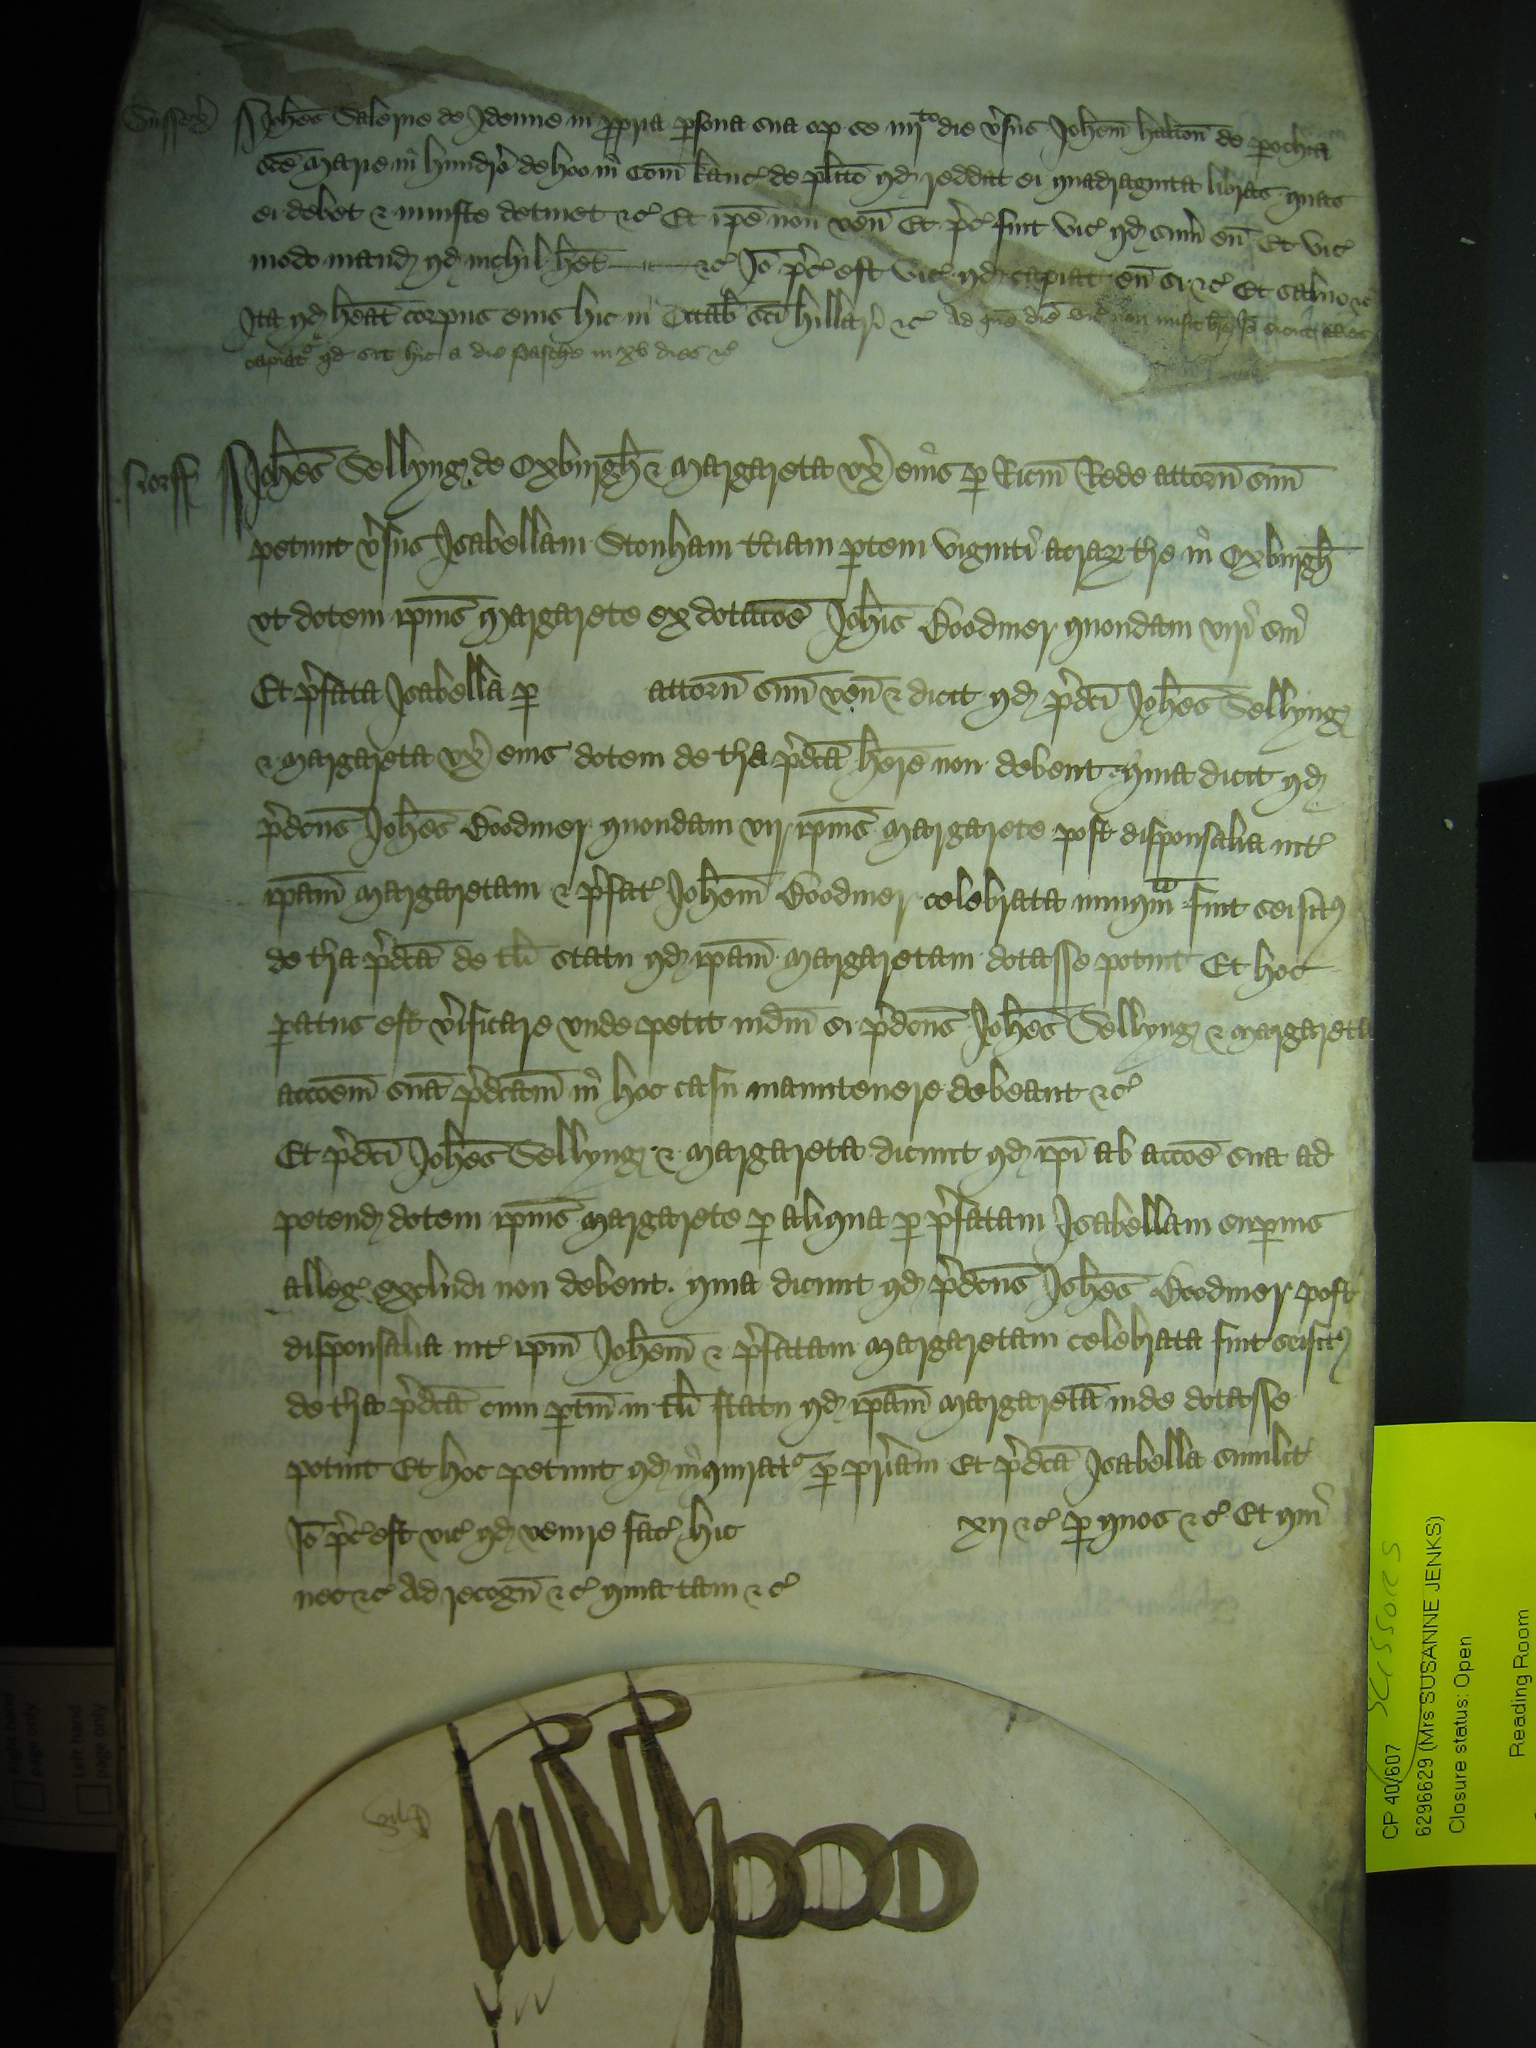 Sussex Joh̄es Salerne de Idenne in propria p̱sona sua op̱ se iiijto die v̓sus Joh̄em halton̄ de p̱ochia
sc̄e Marie in hundr̓o de hoo in Com̄ Kanc̓ de pl̄ito qd̓ reddat ei quadraginta libras quas
ei debet & iniuste detinet &c̓ Et ip̄e non ven̄ Et p̓c̓ fuit vic̓ qd̓ sum̄ eū Et vic̓
modo mand̓ qd̓ nichil h̄et &c̓ Iō p̓c̓ est vic̓ qd̓ capiat eū si &c̓ Et saluo &c̓
Ita qd̓ h̄eat corpus eius hic in Octab̓ sc̄i hillarij &c̓ Ad quē diē vic̓ non misit br̄e Iō sicut alias
capiat̓ qd̓ sit hic a die Pasche in xv dies &c̓
Norff Joh̄es Sellyng̓ de Oxburgh̄ & Margareta vx̓ eius p̱ Ric̄m Rede attorn̄ suū
petunt v̓sus Isabellam Stonham t̓ciam p̱tem viginti acraꝝ t̓re in Oxburgh̄
vt dotem ip̄ius Margarete ex dotac̄oē Joh̄is Boodmer quondam viri sui
Et p̓fata Isabella p̱ attorn̄ suū ven̄ & dicit qd̓ p̓dc̄i Joh̄es Sellyng̓
& Margareta vx̓ eius dotem de t̓ra p̓dc̄a h̄ere non debent quia dicit qd̓
p̓dc̄us Joh̄es Boodmer quondam vir ip̄ius Margarete post disponsalia int̓
ip̄am Margaretam & p̓fat̓ Joh̄em Boodmer celebrata nunqm̄ fuit seisitꝰ
de t̓ra p̓dc̄a de tli̓ statu qd̓ ip̄am Margaretam dotasse potuit Et hoc
p̱atus est v̓ificare vnde petit iudm̄ si p̓dc̄us Joh̄es Sellyng̓ & Margareta
acc̄oem̄ suā p̓dc̄am̄ in hoc casu manutenere debeant &c̓
Et p̓dc̄i Joh̄es Sellyng̓ & Margareta dicunt qd̓ ip̄i ab acc̄oē sua ad
petend̓ dotem ip̄ius Margarete p̱ aliqua p̱ p̓fatam Isabellam sup̱ius
alleg̓ excludi non debent. quia dicunt qd̓ p̓dc̄us Joh̄es Boodmer post
disponsalia int̓ ip̄m Joh̄em & p̓fatam Margaretam celebrata fuit seisitꝰ
de t̓ra p̓dc̄a cum p̱tin̄ in tli̓ statu qd̓ ip̄am Margaretā inde dotasse
potuit Et hoc petunt qd̓ inquirat̓ p̱ pr̓iam Et p̓dc̄a Isabella similit̓
Iō p̓c̓ est vic̓ qd̓ venire fac̓ hic xij &c̓ p̱ quos &c̓ Et qui
nec &c̓ Ad recogn̄ &c̓ quia tam &c̓
CP 40/607 Scissores
6296629 (Mrs SUSANNE JENKS)
Closure status: Open
Reading Room
Right hand
page only
Left hand
page only